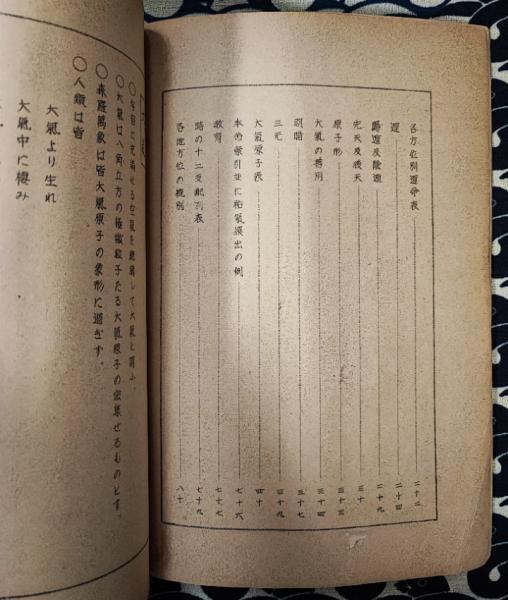 各方位別運命表 二十二
運 二十四
陽遁及陰遁 二十九
先天及後天 三十
原子形 三十三
大氣の種別 三十四
胴階 三十七
三元 三十九
大氣原子表 四十
本命索引並に祐氣演出の例 七十六
教育 七十七
時の十二支配列表 七十九
各地方位の規則 八十
〇宇宙に充満せる空氣を總稱して大氣と謂ふ。
〇大氣は八角立方の極微粒子たる大氣原子の密集せるものとす。
〇森羅萬象は皆大氣原子の象形に過ぎず。
〇人類は皆
大氣より生れ
大氣中に棲み